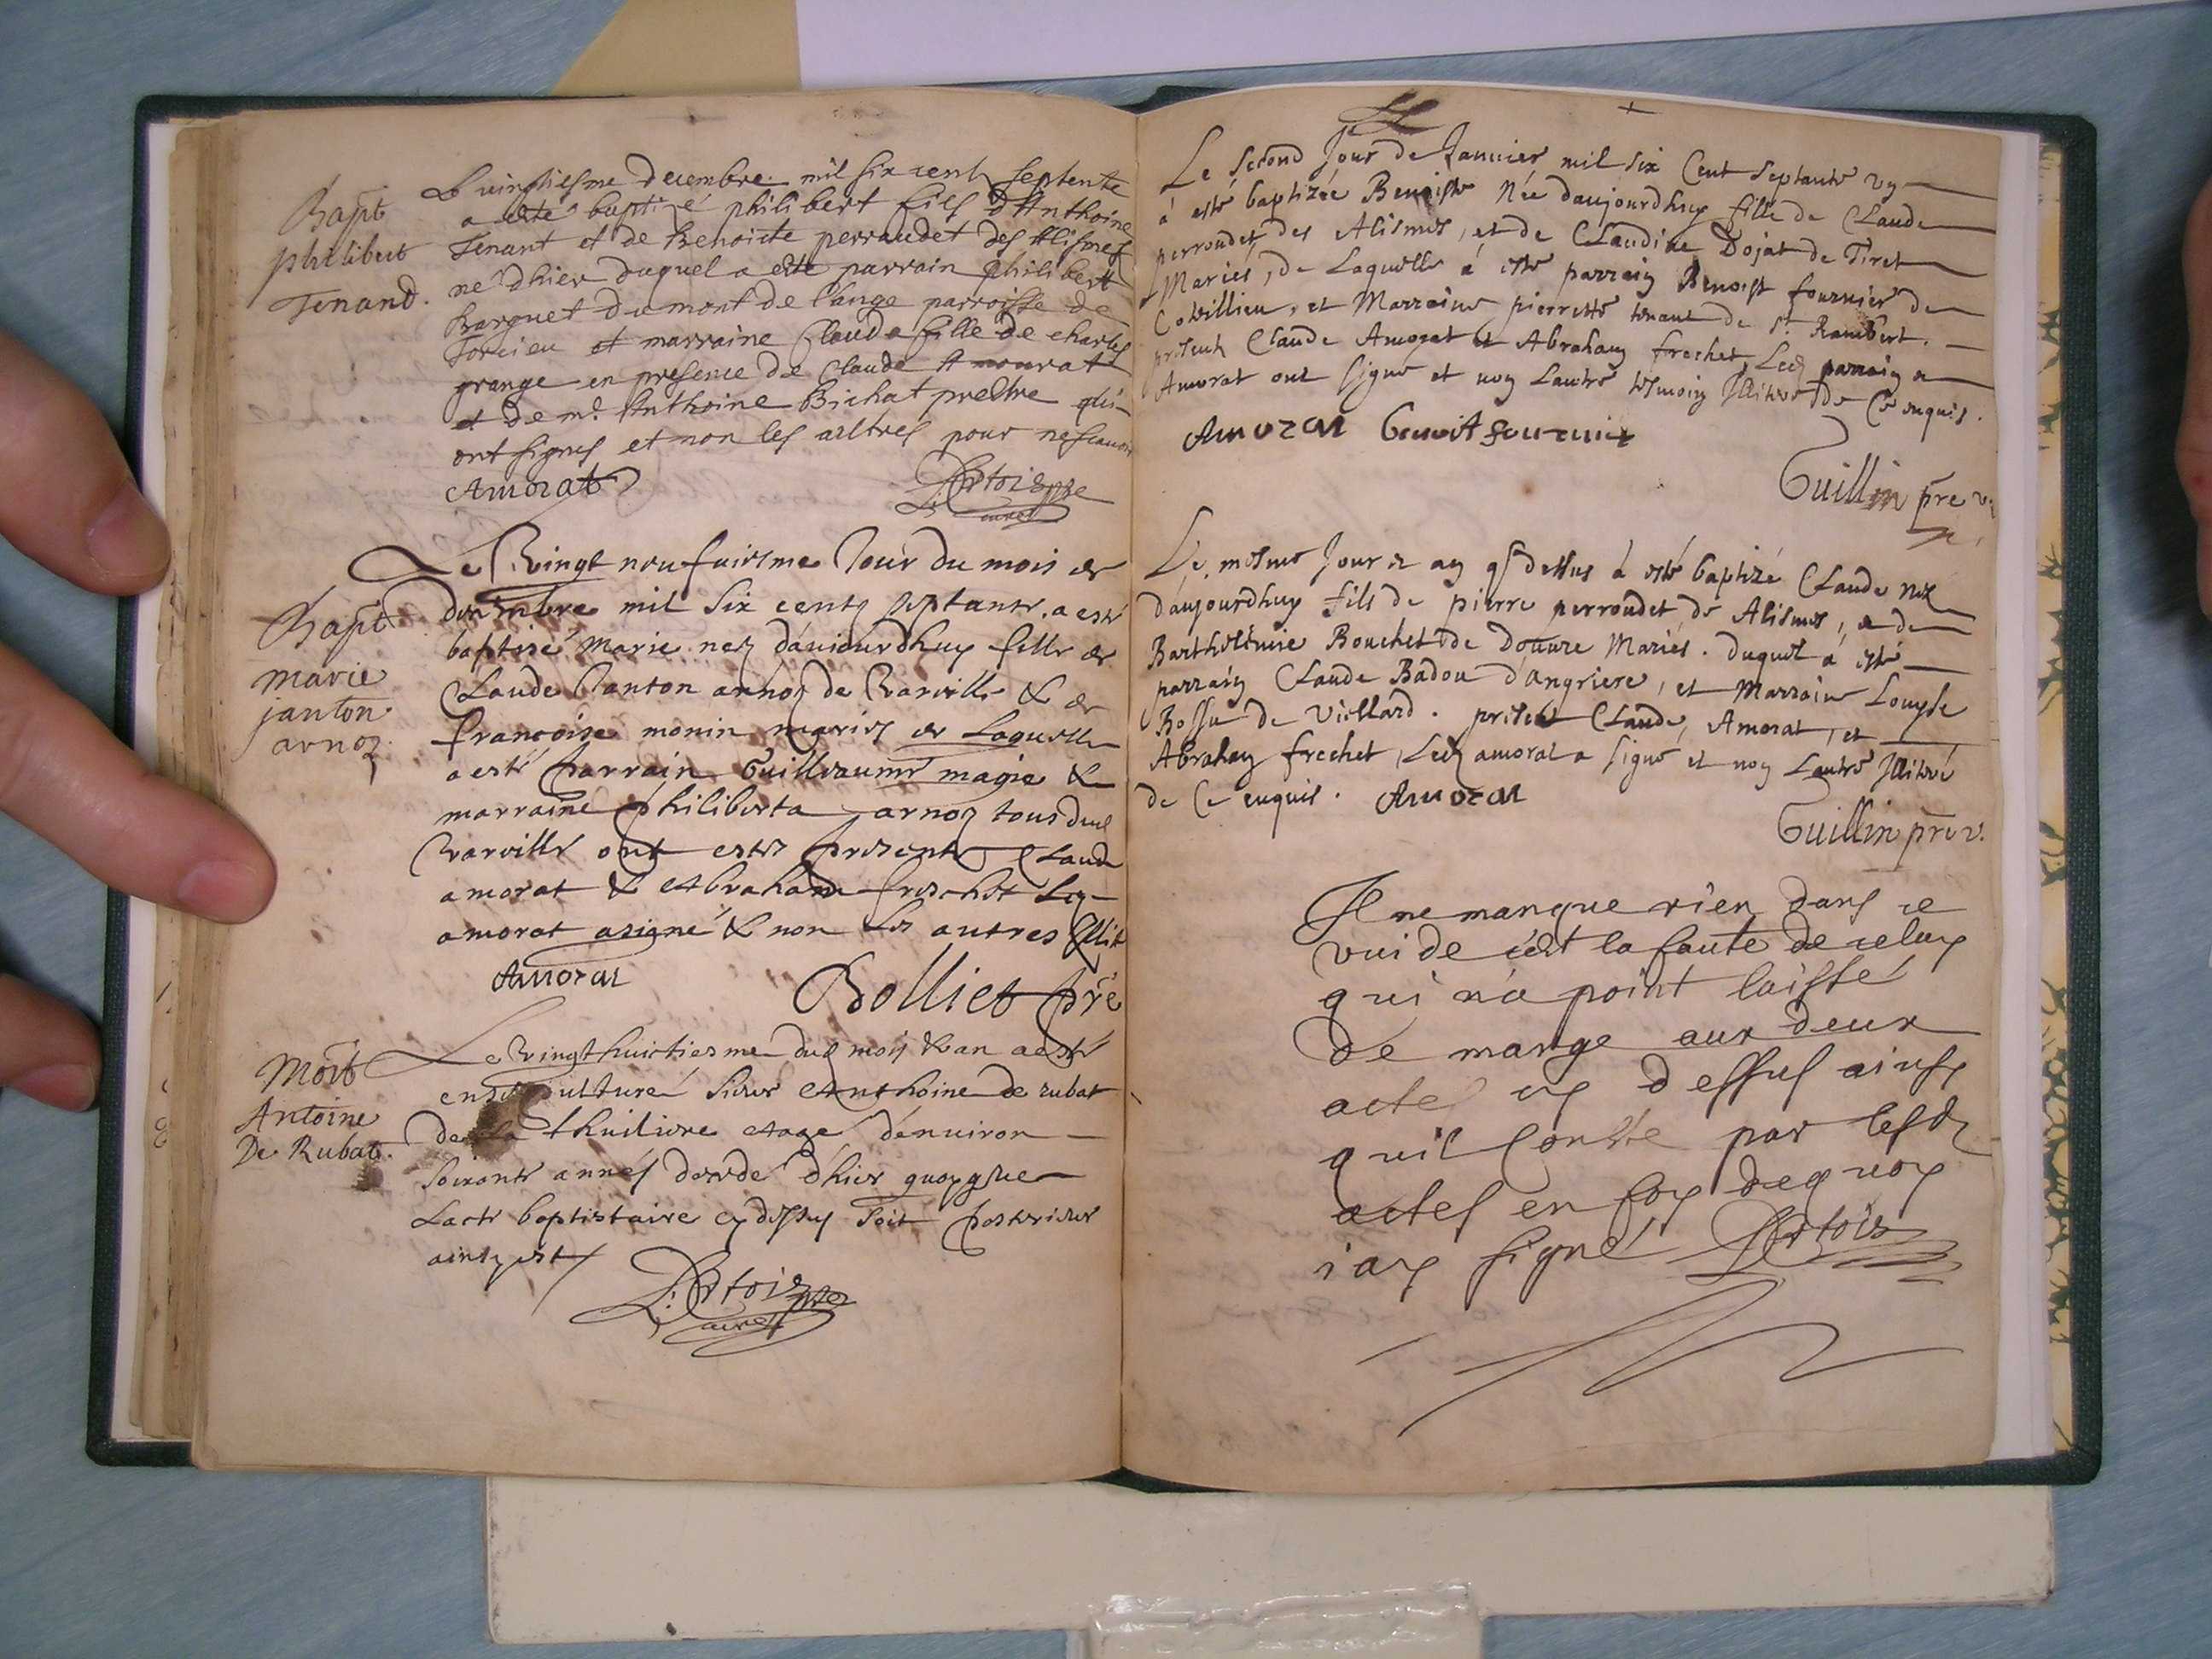 Bapt
philibert
Tenand.
Le vingtiesme decembre mil six cent septente
a esté baptizé philibert fils d'Anthoine
Tenant et de Benoicte perraudet des Alismes
né dhier duquel a esté parrain philibert
Barquet du mont de lange parroisse de
Torcieu et marraine Clauda fille de charles
grange en presence de Claude Amourat
et de mre Anthoine Bichat prestre qui
ont signes et non les aultres pour ne scavoir
Amorat
D: Artois pre
curé
Bapt
marie
janton
arnoz
Le Vingt neufuiesme Jour du mois de
decembre mil six centz septante a esté
baptisé marie nez dauiourdhuy fille de
Claude Janton arnoz de Varville & de
francoise monin mariez de laquelle
a esté parrain Guilleaume magia &
marraine philiberta arnoz tous dud
Varville ont estes presents Claude
amorat & Abraham freschet led
amorat a signé & non les autres Illit
Amorat
Bolliet pre
Mort
Antoine
De Rubat.
Le Vingthuictiesme dud mois & an a esté
ensepulturé sieur Anthoine de rubat
de la thuiliere eage denuiron
soixante années decedé dhier quoyque
lacte baptistaire cy dessus soit posterieur
ainsy est
D: Artois pre
curé
Le second Jour de Januier mil six Cent septante vn
à esté baptizée Benoiste Née daujourdhuy fille de Claude
perroudet des Alismes, et de Claudine Dojat de Tiret
Mariés, de Laquelle à esté parrain Benoist fournier de
Covillieu, et Marraine pierrette tenant de St. Rambert.
present Claude Amorat et Abraham frechet, Led parrain et
Amorat ont signé et non Lautre tesmoin Illitéré de Ce enquis.
Amorat Benoit fournier
Guillin pre v.
Le mesme Jour et an que dessus à esté baptizé Claude nez
daujourdhuy fils de pierre perroudet de Alismes, et de
Barthelemie Bouchet de Douvre Mariés. duquel à esté
parrain Claude Badou d'angriere, et Marraine Louyse
Bossu de Viellard. present Claude Amorat, et
Abraham frechet, Led amorat a signé et non Lautre Illitéré
de Ce enquis. Amorat
Guillin pre v.
Il ne manque rien dans ce
vuide c'est la faute de celuy
qui n'a point laissé
de marge aux deux
actes cy dessus ainsy
quil conste par lesd
actes en foy dequoy
iay signé D Artois